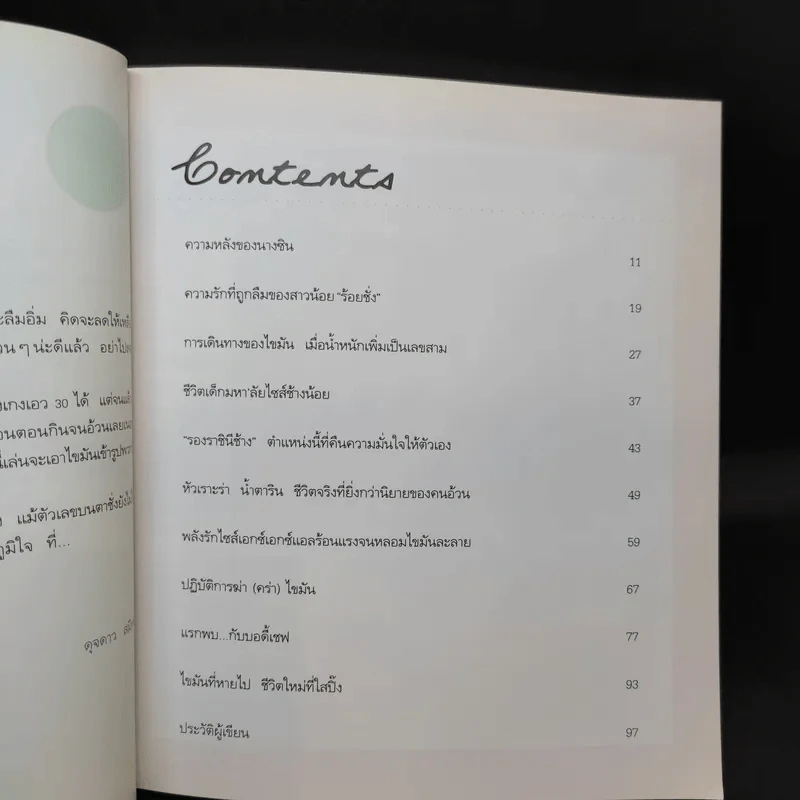 ะลืมอิ่ม คิดจะลดให้เหลือ
วน ๆ น่ะดีแล้ว
งเกงเอว 30 ได้ แต่จนแล้ว
อนตอนกินจนอ้วนเลย
นี้แล่นจะเอาไขมันเข้ารูป
แม้ตัวเลขบนตาชั่งยังไม่
ภูมิใจ ที่...
ดุจดาว
Contents
ความหลังของนางซิน 11
ความรักที่ถูกลืมของสาวน้อย "ร้อยชั่ง" 19
การเดินทางของไขมัน เมื่อน้ำหนักเพิ่มเป็นเลขสาม 27
ชีวิตเด็กมหา'ลัยไซส์ช้างน้อย 37
"รองราชินีช้าง" ตำแหน่งนี้ที่คืนความมั่นใจให้ตัวเอง 43
หัวเราะร่า น้ำตาริน ชีวิตจริงที่ยิ่งกว่านิยายของคนอ้วน 49
พลังรักไซส์เอกซ์เอกซ์แอลร้อนแรงจนหลอมไขมันละลาย 59
ปฏิบัติการฆ่า (คร่า) ไขมัน 67
แรกพบ...กับบอดี้เชฟ 77
ไขมันที่หายไป ชีวิตใหม่ที่ใสปิ๊ง 93
ประวัติผู้เขียน 97